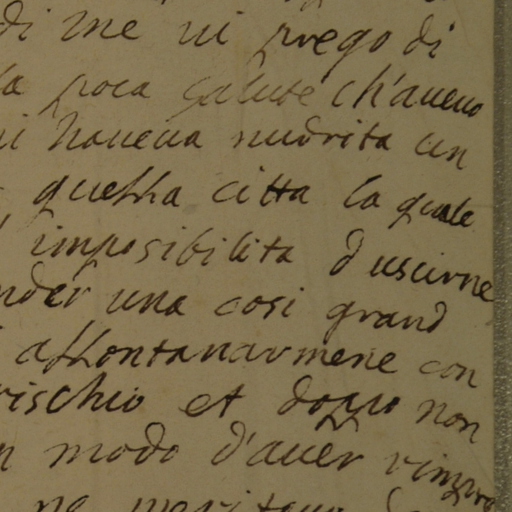 di me vi priego di
la poca salute ch'aueuo
ui haueua nudrita un
quella citta la quale
imposibilita d'uscirne
nder una cosi grand
allontanarmene con
rischio et doppo non
n modo d'auer rimpro
ne